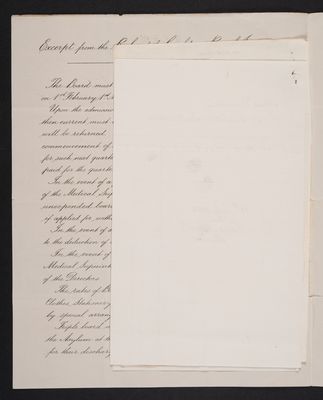 Excerpt from the
The Board must
on 1st February, 1st
Upon the admission
then current, must
will be returned
commencement of
for such next quarter
paid for the quarter
In the event of a
of the Medical Super
unexpended board
if applied for, with
In the event of a
to the deduction of
In the event of
Medical Superint
of the Directors
The rates of B
Clothes, Stationery
by special arran
Triple board
the Asylum at t
for their discharg